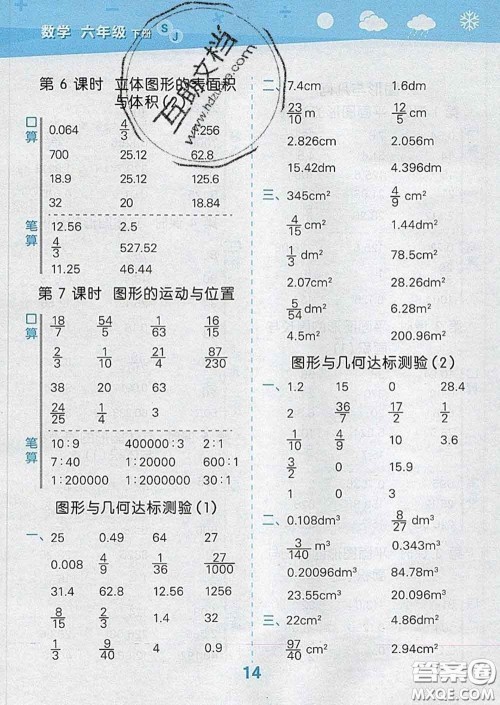 数学 六年级 下册
SJ
第 6 课时 立体图形的表面积
与体积
口算
0.064 4/3 1256
700 25.12 62.8
18.9 25.12 125.6
32 20 18.84
笔算
12.56 2.5
4/3 527.52
11.25 46.44
第 7 课时 图形的运动与位置
口算
18/7 54/5 1/63 16/15
2/3 1/10 21/4 87/230
38 20 63
24/25 1/4 3
笔算
10:9 400000:3 2:1
7:40 1:20000 600:1
1:200000 1:2000000 30:1
图形与几何达标测验(1)
一、 25 0.49 64 27
0.008 4/9 1/36 27/1000
31.4 62.8 12.56 1256
8/15 2/3 2 0.09
1/3 9/40 4 0.9
二、7.4cm 1.6dm
23/10 m 12/5 cm
2.826cm 2.055m
15.42dm 4.396dm
三、345cm² 4/9 cm²
4/15 cm² 1.44m²
1/3 dm² 78.5cm²
2.07cm² 28.26dm²
5/54 dm² 6.28m²
4.5m² 200.96m²
图形与几何达标测验(2)
一、 1.2 15 0 28.4
2 36/7 17/2 1/2
1/10 4/9 10 3.6
3/2 0 15.9
1 0 3 0.5
二、0.108dm³ 8/27 dm³
3/140 m³ 0.3375m³
0.20096dm³ 84.78m³
23.55cm³ 20.64cm³
三、22cm² 4.86dm²
97/40 cm² 2.94cm²
14
互助文档
www.hdzuoye.com
答案圈
MXQE.COM